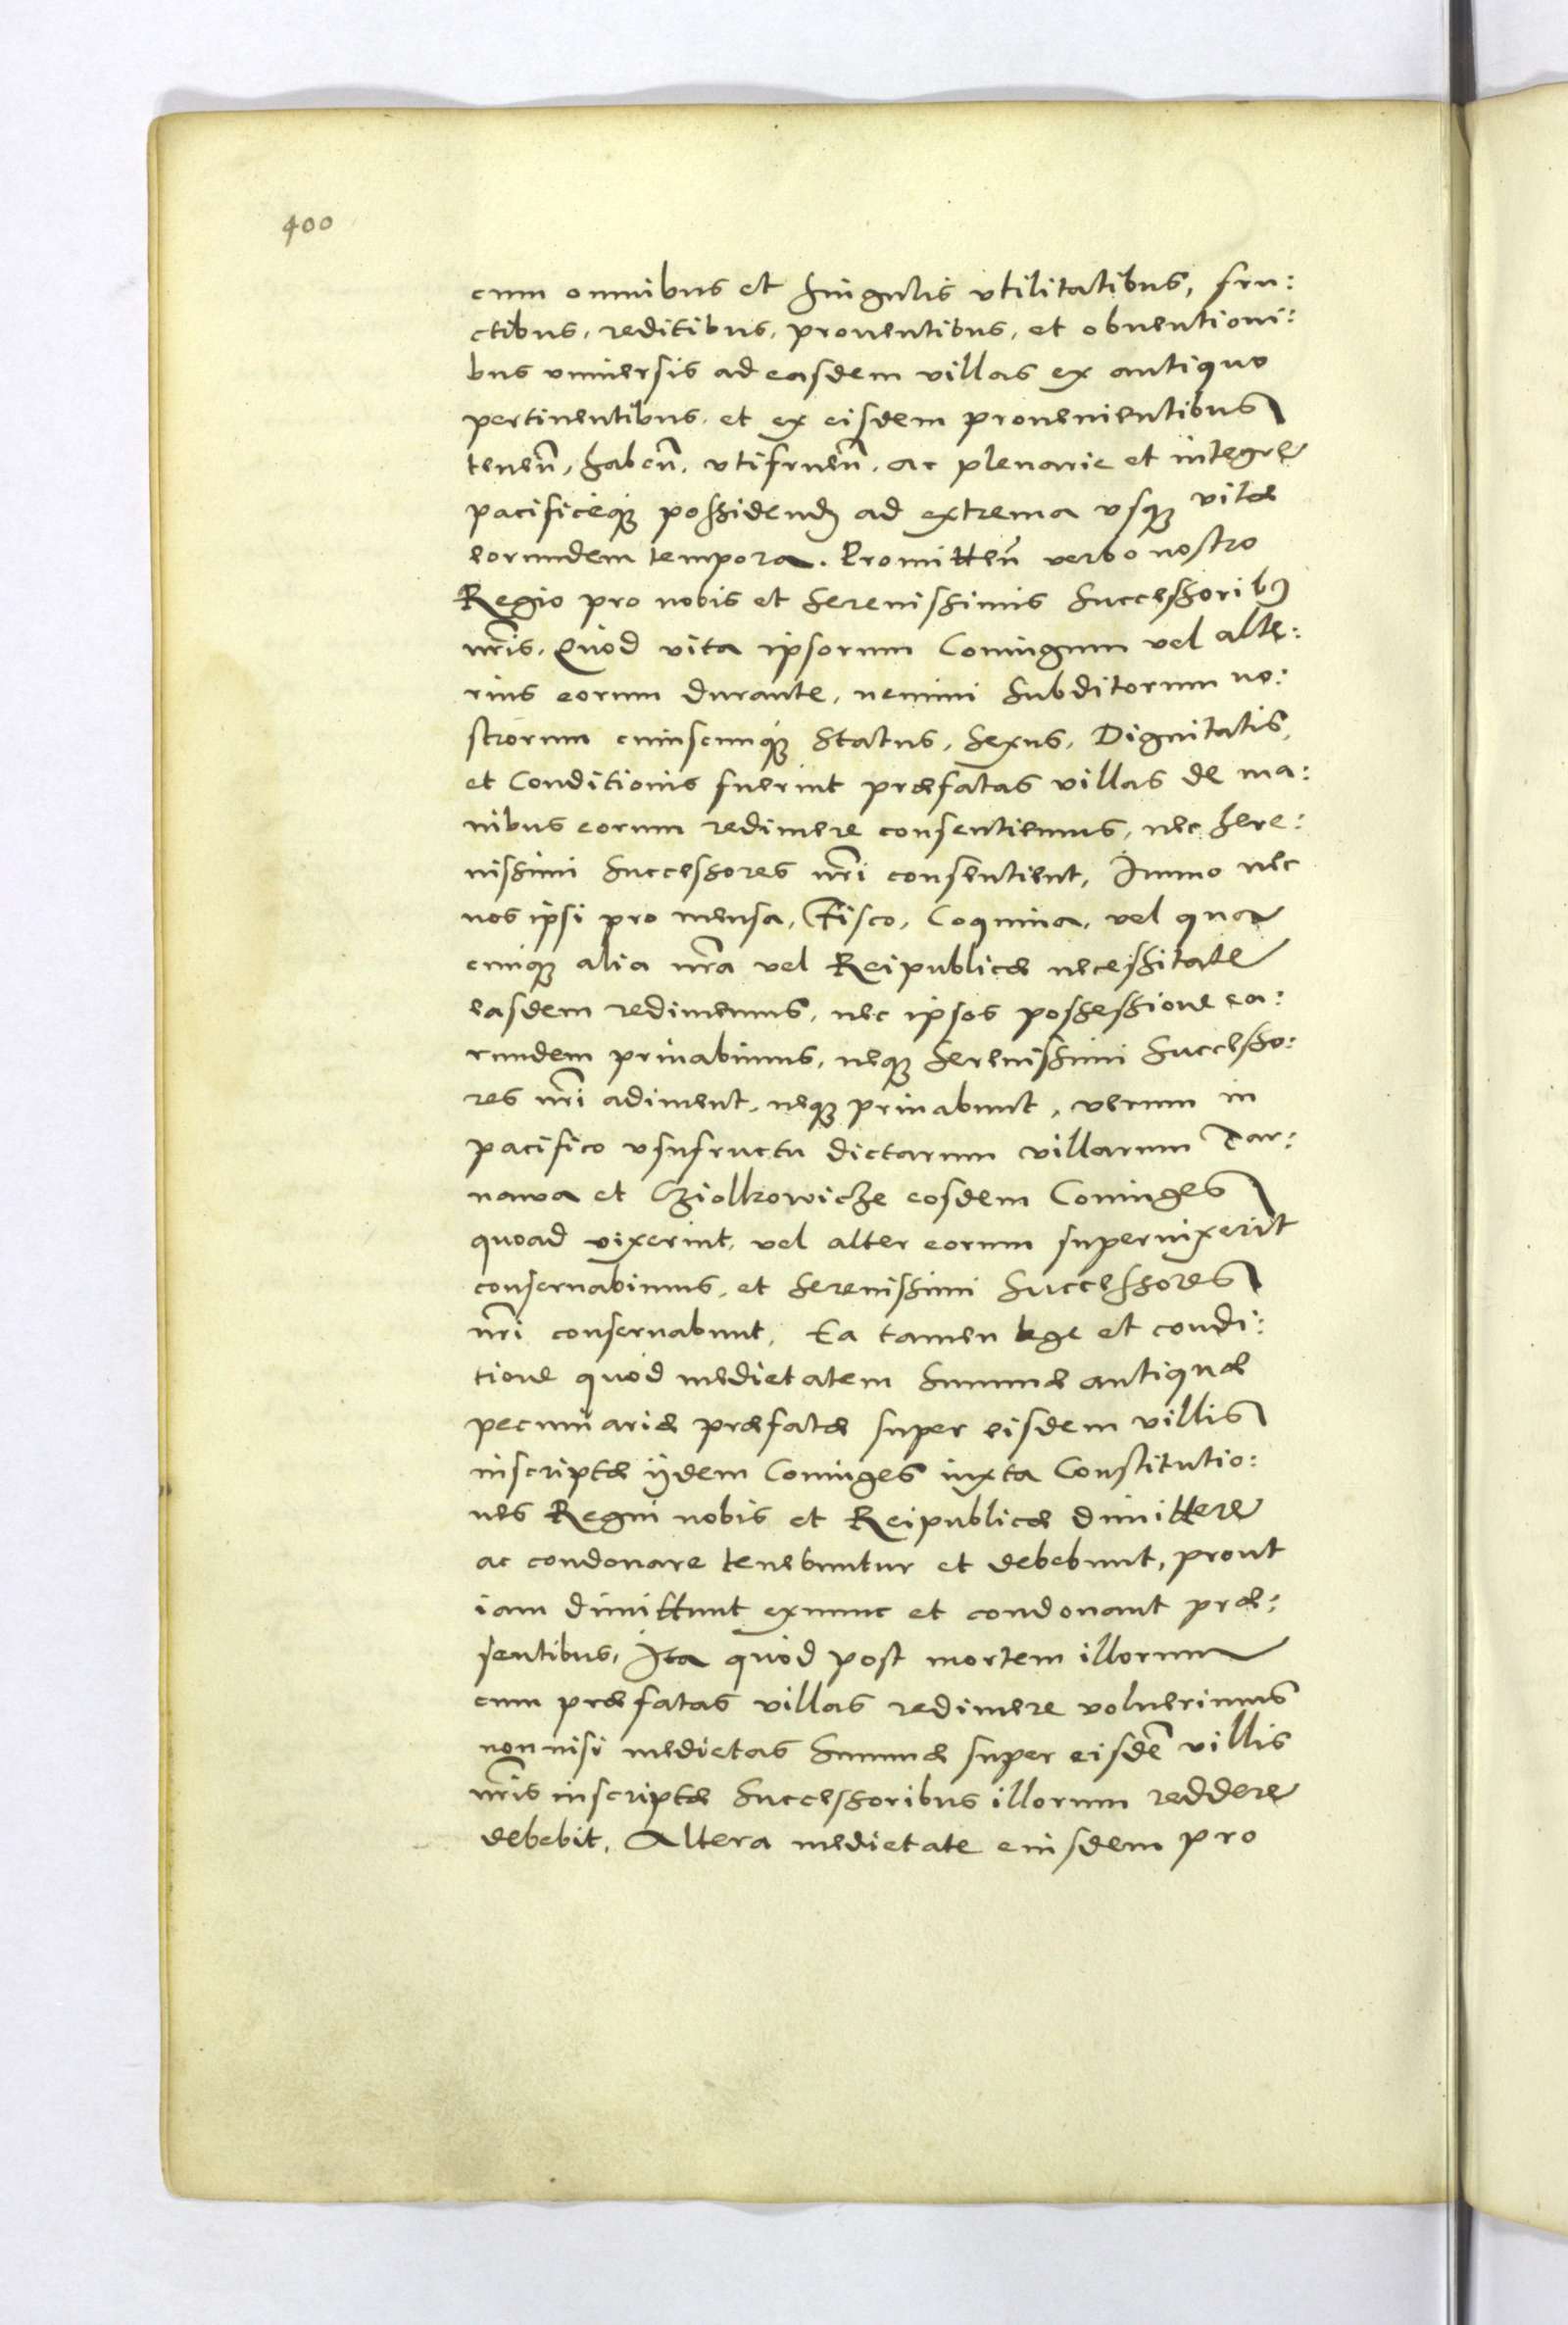 400
cum omnibus et singulis vtilitatibus, fru:
ctibus, reditibus, prouentibus, et obuentioni:
bus vniuersis ad easdem villas ex antiquo
pertinentibus, et ex eisdem prouenientibus
tenen̄, haben̄, vtifruen̄, ac plenarie et integre
pacificeq́ꝫ possidend ad extrema vsqꝫ vitæ
eorundem tempora. Promitten̄ verbo nostro
Regio pro nobis et Serenissimis Successoribꝰ
nr̄is. Quod vita ipsorum Coniugum vel alte:
rius eorum durante, nemini Subditorum no:
strorum cuiuscunqꝫ Status, Sexus, Dignitatis,
et Conditionis fuerint præfatas villas de ma:
nibus eorum redimere consentiemus, nec Sere:
nissimi Successores nr̄i consentient, Immo nec
nos ipsi pro mensa, Fisco, Coquina, vel qua
cunqꝫ alia nr̄a vel Reipublicæ necessitate
easdem redimemus, nec ipsos possessione ea:
rundem priuabimus, neqꝫ Serenissimi Successo:
res nr̄i adiment, neqꝫ priuabunt, verum in
pacifico vsufructu dictarum villarum Tar:
nawa et Cziolkowicze eosdem Coniuges
quoad vixerint, vel alter eorum superuixerit
conseruabimus, et Serenissimi Successores
nr̄i conseruabunt, Ea tamen lege et condi:
tione quod medietatem Summæ antiquæ
pecuniariæ præfatæ super eisdem villis
inscriptæ ijdem Coniuges iuxta Constitutio:
nes Regni nobis et Reipublicæ dimittere
ac condonare tenebuntur et debebunt, prout
iam dimittunt exnunc et condonant præ:
sentibus, Ita quod post mortem illorum
cum præfatas villas redimere voluerimus
nonnisi medietas Summæ super eisdē villis
nr̄is inscriptæ Successoribus illorum reddere
debebit, Altera medietate eiusdem pro